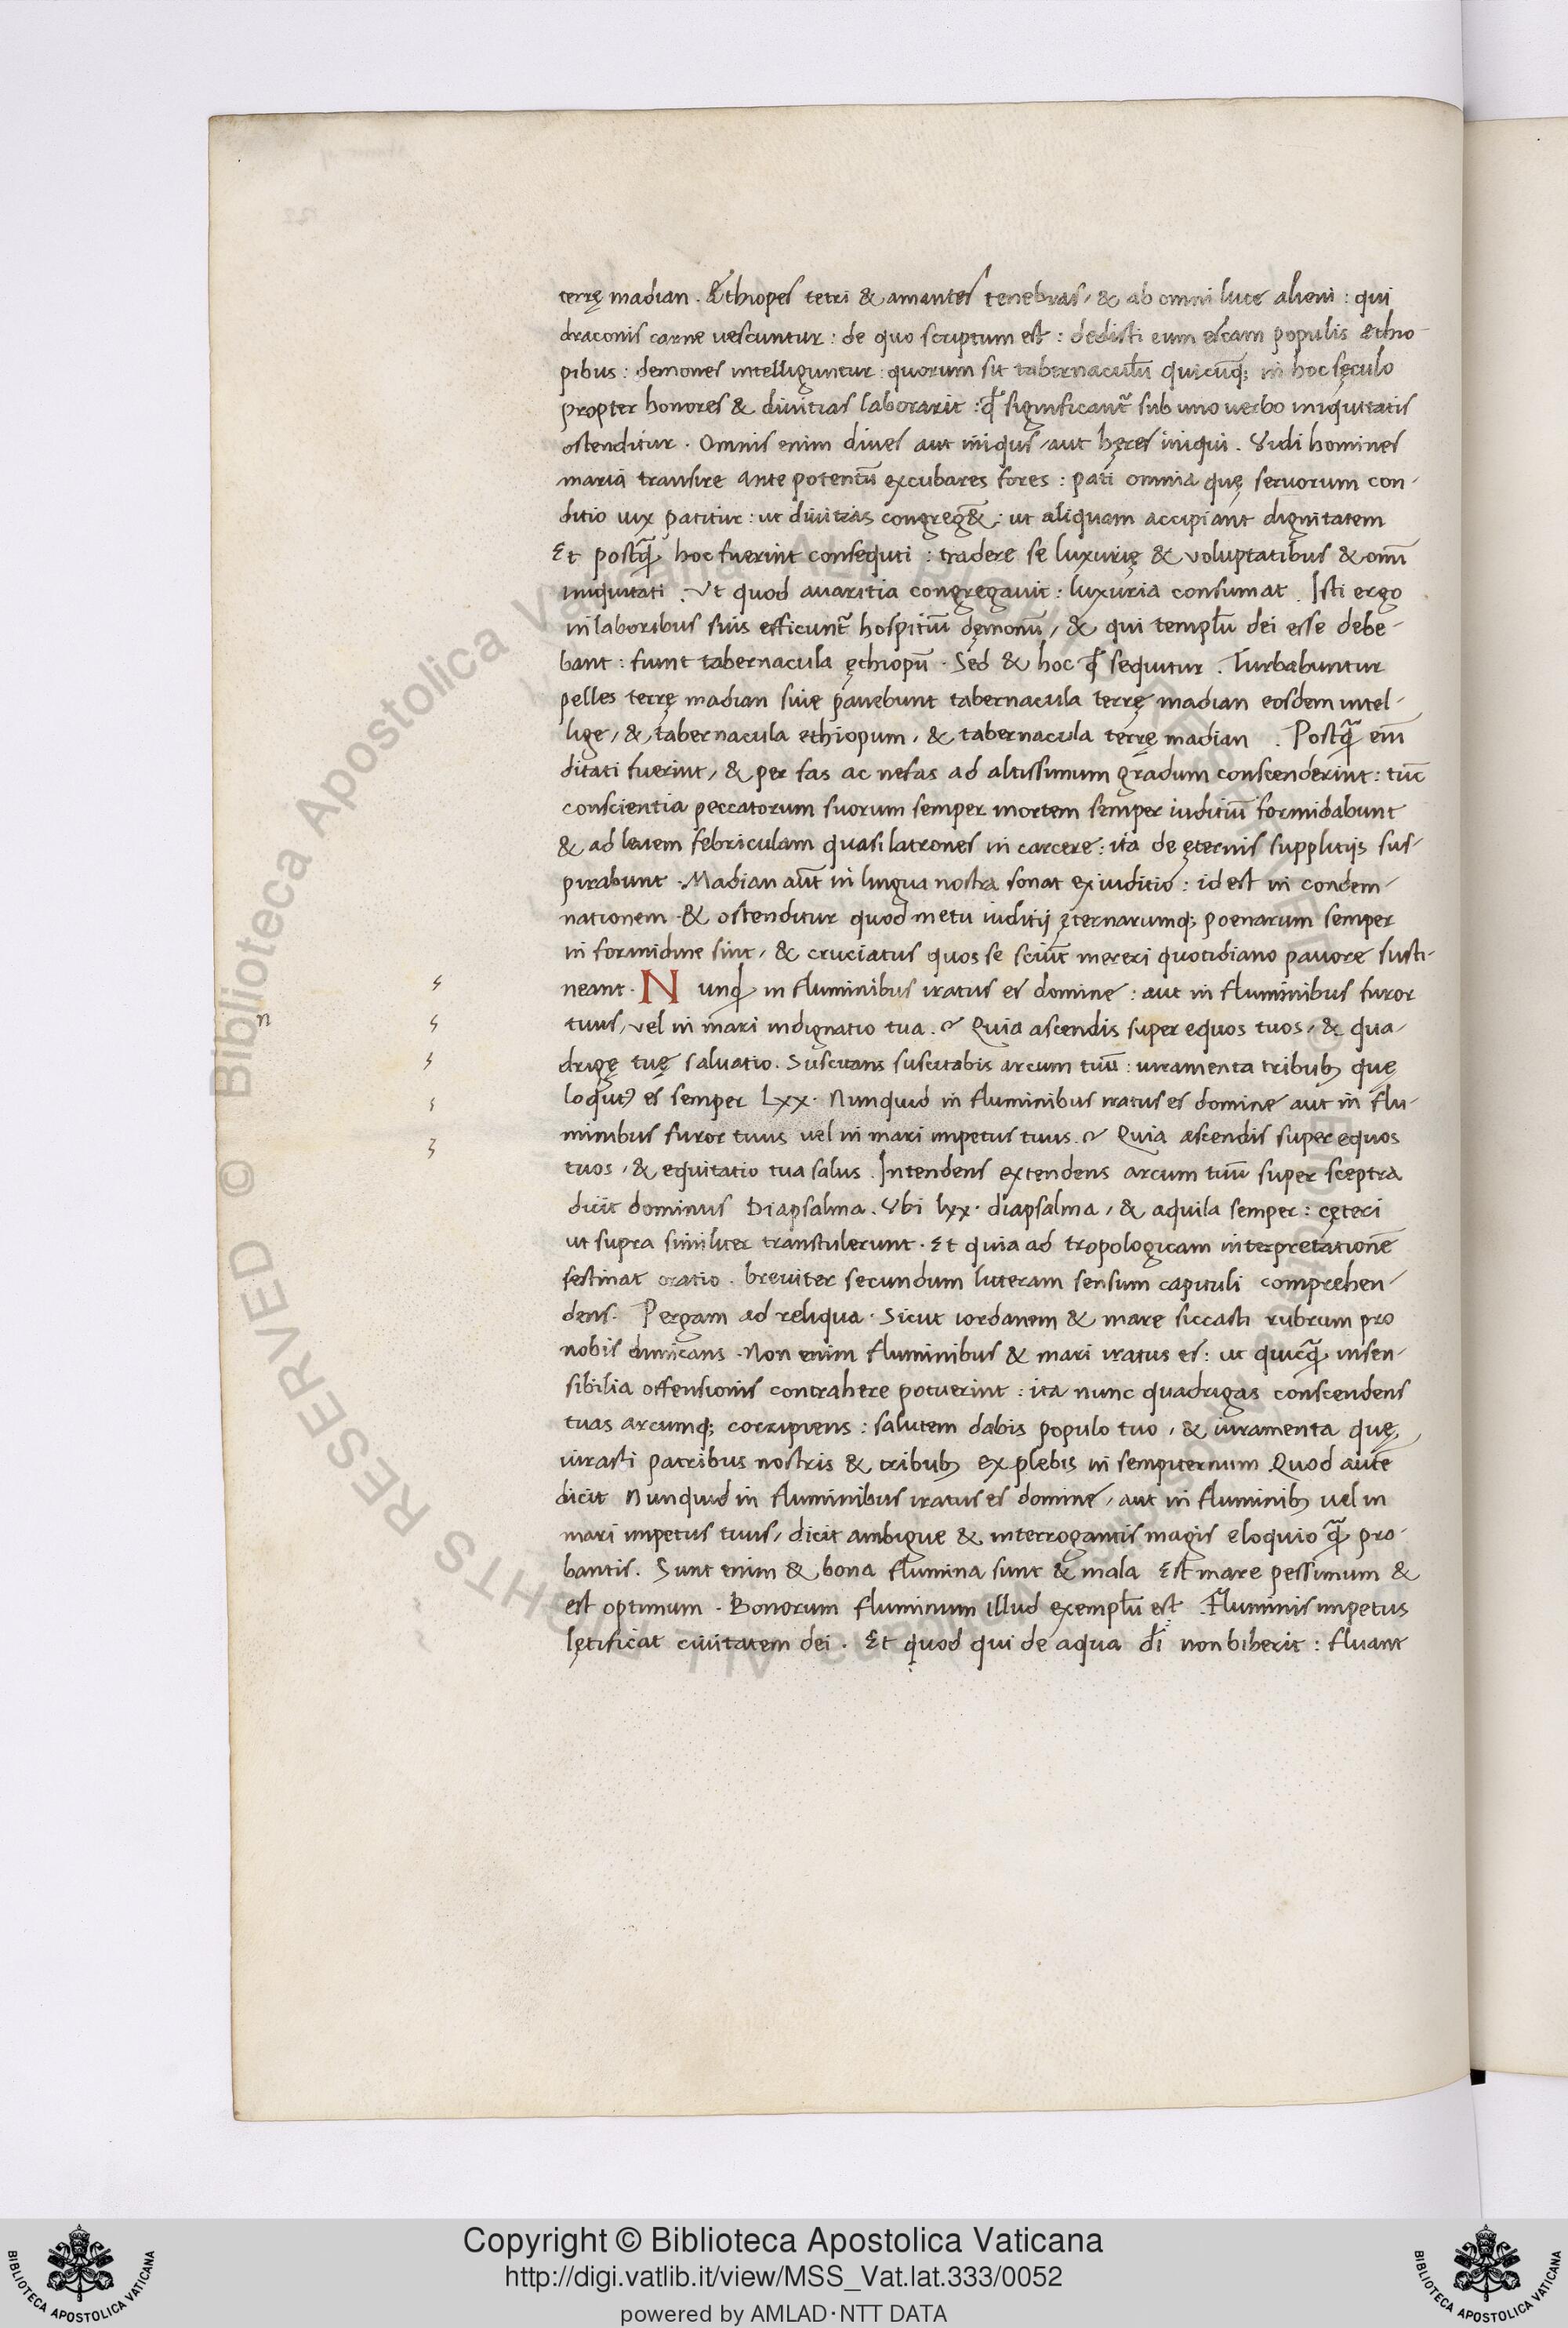 terrę madian. Æthiopes tetri & amantes tenebras, & ab omni luce alieni: qui
draconis carne uescuntur: de quo scriptum est: dedisti eum escam populis æthio-
pibus: demones intelliguntur: quorum sit tabernaculū quicūq; in hoc sęculo
propter honores & diuitias laborarit: qđ significant᷑ sub uno uerbo iniquitatis
ostenditur. Omnis enim diues aut iniqus, aut hęres iniqui. Vidi homines
maria transire ante potentū excubares fores: pati omnia quę seruorum con-
ditio uix patitur: ut diuitias congreg&: ut aliquam accipiant dignitatem
Et postq̄ hoc fuerint consequti: tradere se luxurię & voluptatibus & omī
iniquitati. Vt quod auaritia congregauit: luxuria consumat. Isti ergo
in laboribus suis efficunt᷑ hospitiū dęmonū, & qui templū dei esse debe-
bant: fiunt tabernacula ęthiopū. Sed & hoc qđ sequitur. Turbabuntur
pelles terrę madian siue pauebunt tabernacula terrę madian eosdem intel-
lige, & tabernacula ethiopum, & tabernacula terrę madian. Postq̄ eīm
ditati fuerint, & per fas ac nefas ad altissimum gradum conscenderint: tūc
conscientia peccatorum suorum semper mortem semper iuditiū formidabunt
& ad leuem febriculam quasi latrones in carcere: ita de ęternis supplitijs sus-
pirabunt. Madian aūt in lingua nostra sonat ex iuditio: id est in condem-
nationem & ostenditur quod metu iuditij ęternarumq; poenarum semper
in formidine sint, & cruciatus quos se sciūt mereri quotidiano pauore susti-
neant. N unqđ in fluminibus iratus es domine: aut in fluminibus furor
n tuus, vel in mari indignatio tua.? Quia ascendis super equos tuos, & qua-
drigę tuę saluatio. Suscitans suscitabis arcum tuū: iuramenta tribub; quę
loqut9 es semper Lxx. Nunquid in fluminibus iratus es domine aut in flu-
minibus furor tuus uel in mari impetus tuus.? Quia ascendis super equos
tuos, & equitatio tua salus. Intendens extendens arcum tuū super sceptra
dicit dominus Diapsalma. Vbi lxx. diapsalma, & aquila semper: cęteri
ut supra similiter transtulerunt. Et quia ad tropologicam interpretationē
festinat oratio. breuiter secundum litteram sensum capituli comprehen-
dens. Pergam ad reliqua. Sicut iordanem & mare siccasti rubrum pro
nobis dimicans. Non enim fluminibus & mari iratus es: ut quicq̄ insen-
sibilia offensionis contrahere potuerint: ita nunc quadrigas conscendens
tuas arcumq; corripiens: salutem dabis populo tuo, & iuramenta quę
iurasti patribus nostris & tribub; explebis in sempiternum Quod autē
dicit Nunquid in fluminibus iratus es domine, aut in fluminib; uel in
mari impetus tuus, dicit ambigue & interrogantis magis eloquio q̄ pro-
bantis. Sunt enim & bona flumina sunt & mala Est mare pessimum &
est optimum. Bonorum fluminum illud exemplū est. Fluminis impetus
lętificat ciuitatem dei. Et quod qui de aqua dī non biberit: fluant
Biblioteca Apostolica Vaticana
ALL RIGHTS RESERVED ©
Copyright © Biblioteca Apostolica Vaticana
http://digi.vatlib.it/view/MSS_Vat.lat.333/0052
powered by AMLAD·NTT DATA
BIBLIOTECA APOSTOLICA VATICANA
BIBLIOTECA APOSTOLICA VATICANA